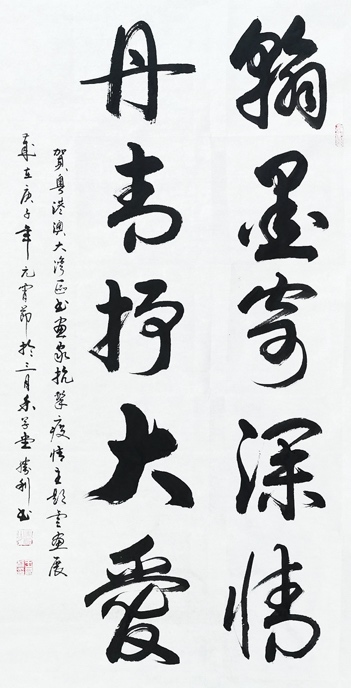 翰墨寄深情
丹青抒大爱
贺粤港澳大湾区书画家抗击疫情主题书画展
岁在庚子年元宵节於三月未学堂胜利书